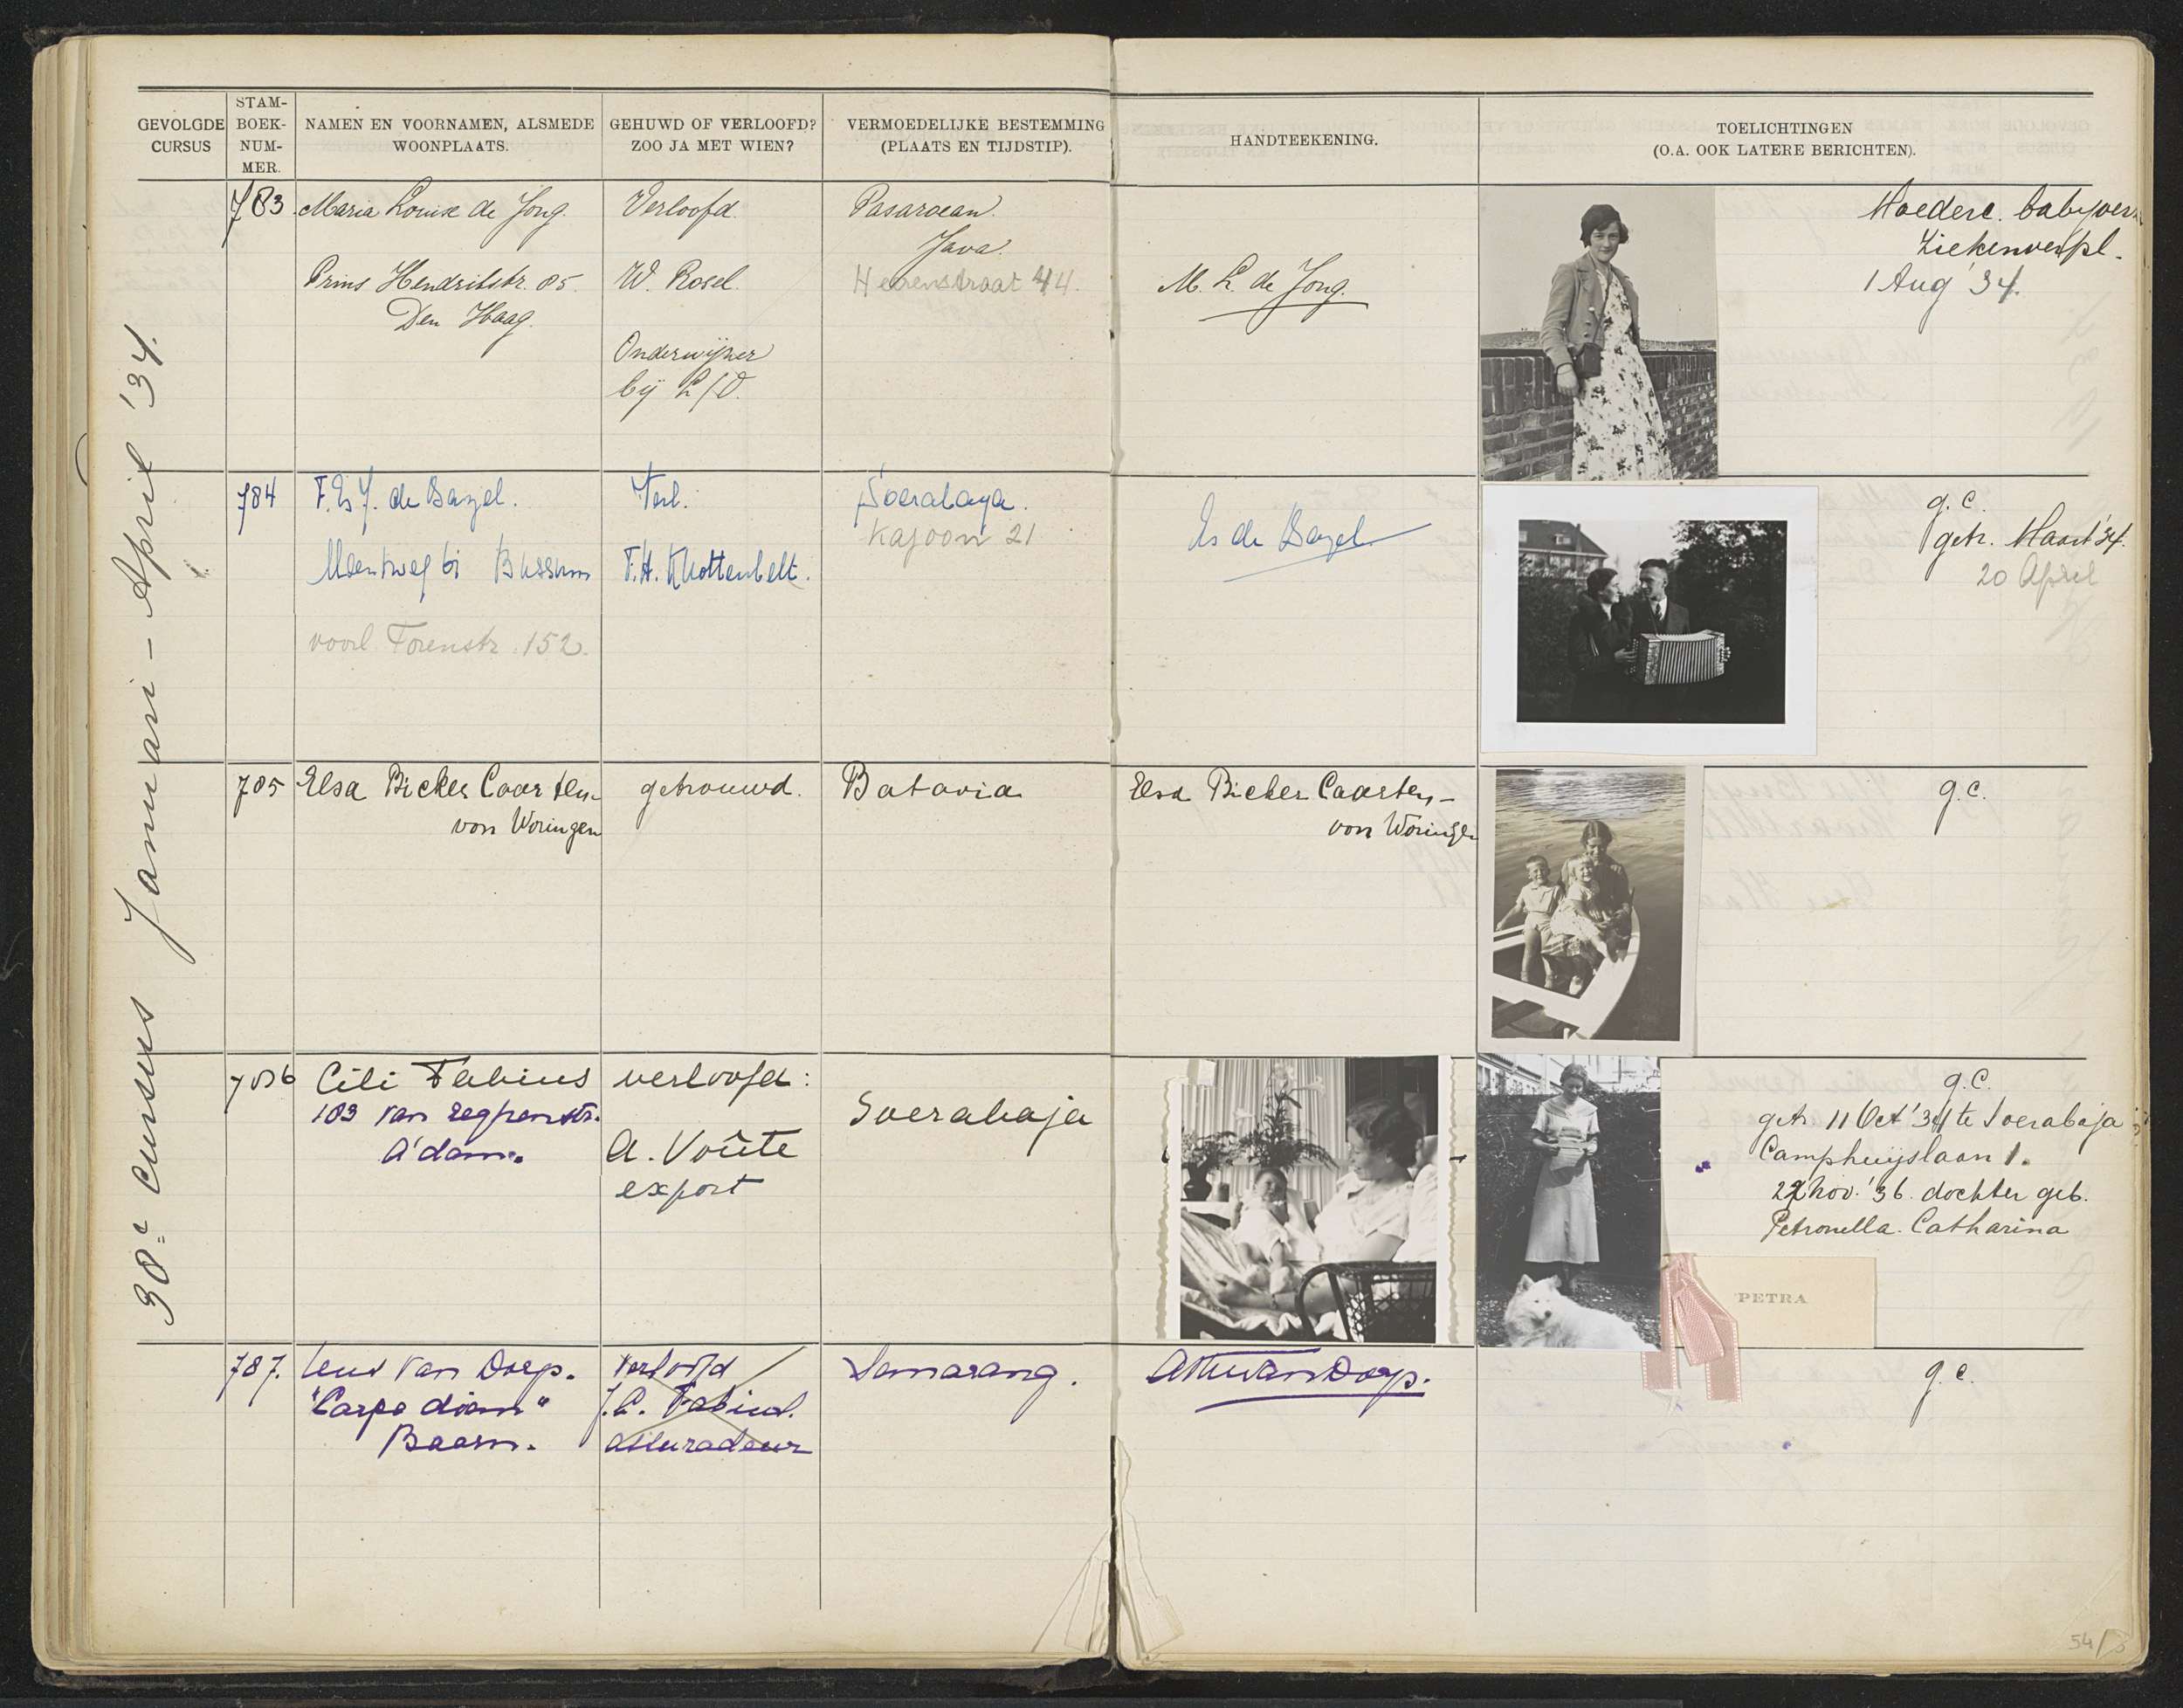 GEVOLGDE
CURSUS
STAM-
BOEK-
NUM-
MER.
NAMEN EN VOORNAMEN, ALSMEDE
WOONPLAATS.
GEHUWD OF VERLOOFD?
ZOO JA MET WIEN?
VERMOEDELIJKE BESTEMMING
(PLAATS EN TIJDSTIP).
HANDTEEKENING.
TOELICHTINGEN
(O.A. OOK LATERE BERICHTEN).
38e Cursus Januari - April '34.
783
Maria Louise de Jong.
Prins Hendrikstr. 85.
Den Haag.
Verloofd.
W. Rosel.
Onderwijzer
bij L/O.
Pasaroean.
Java.
Heerenstraat 44.
M. L. de Jong.
Moederc. babyver
Ziekenverpl.
1 Aug '34.
784
de Bazel.
Bussum
voorl. Torenstr. 152.
Verl.
F.H. Knottenbelt.
Soerabaya.
Kajoon 21
Es de Bazel
g.c.
getr. Maart '34.
20 April
785
Elsa Bicker Caarten-
von Woringen
getrouwd.
Batavia
Elsa Bicker Caarten-
von Woringen
g.c.
786
Cili Fabius
103 van Eeghenstr.
A'dam.
verloofd:
A. Voûte
export
Soerabaja
g.c.
getr. 11 Oct '34 te Soerabaja
Camphuijslaan 1.
22 nov. '36. dochter geb.
Petronella Catharina
PETRA
787.
van Dorp.
"Carpe diem"
Baarn.
verloofd
J.C. Fabius.
assuradeur
Semarang.
van Dorp.
g.c.
54/